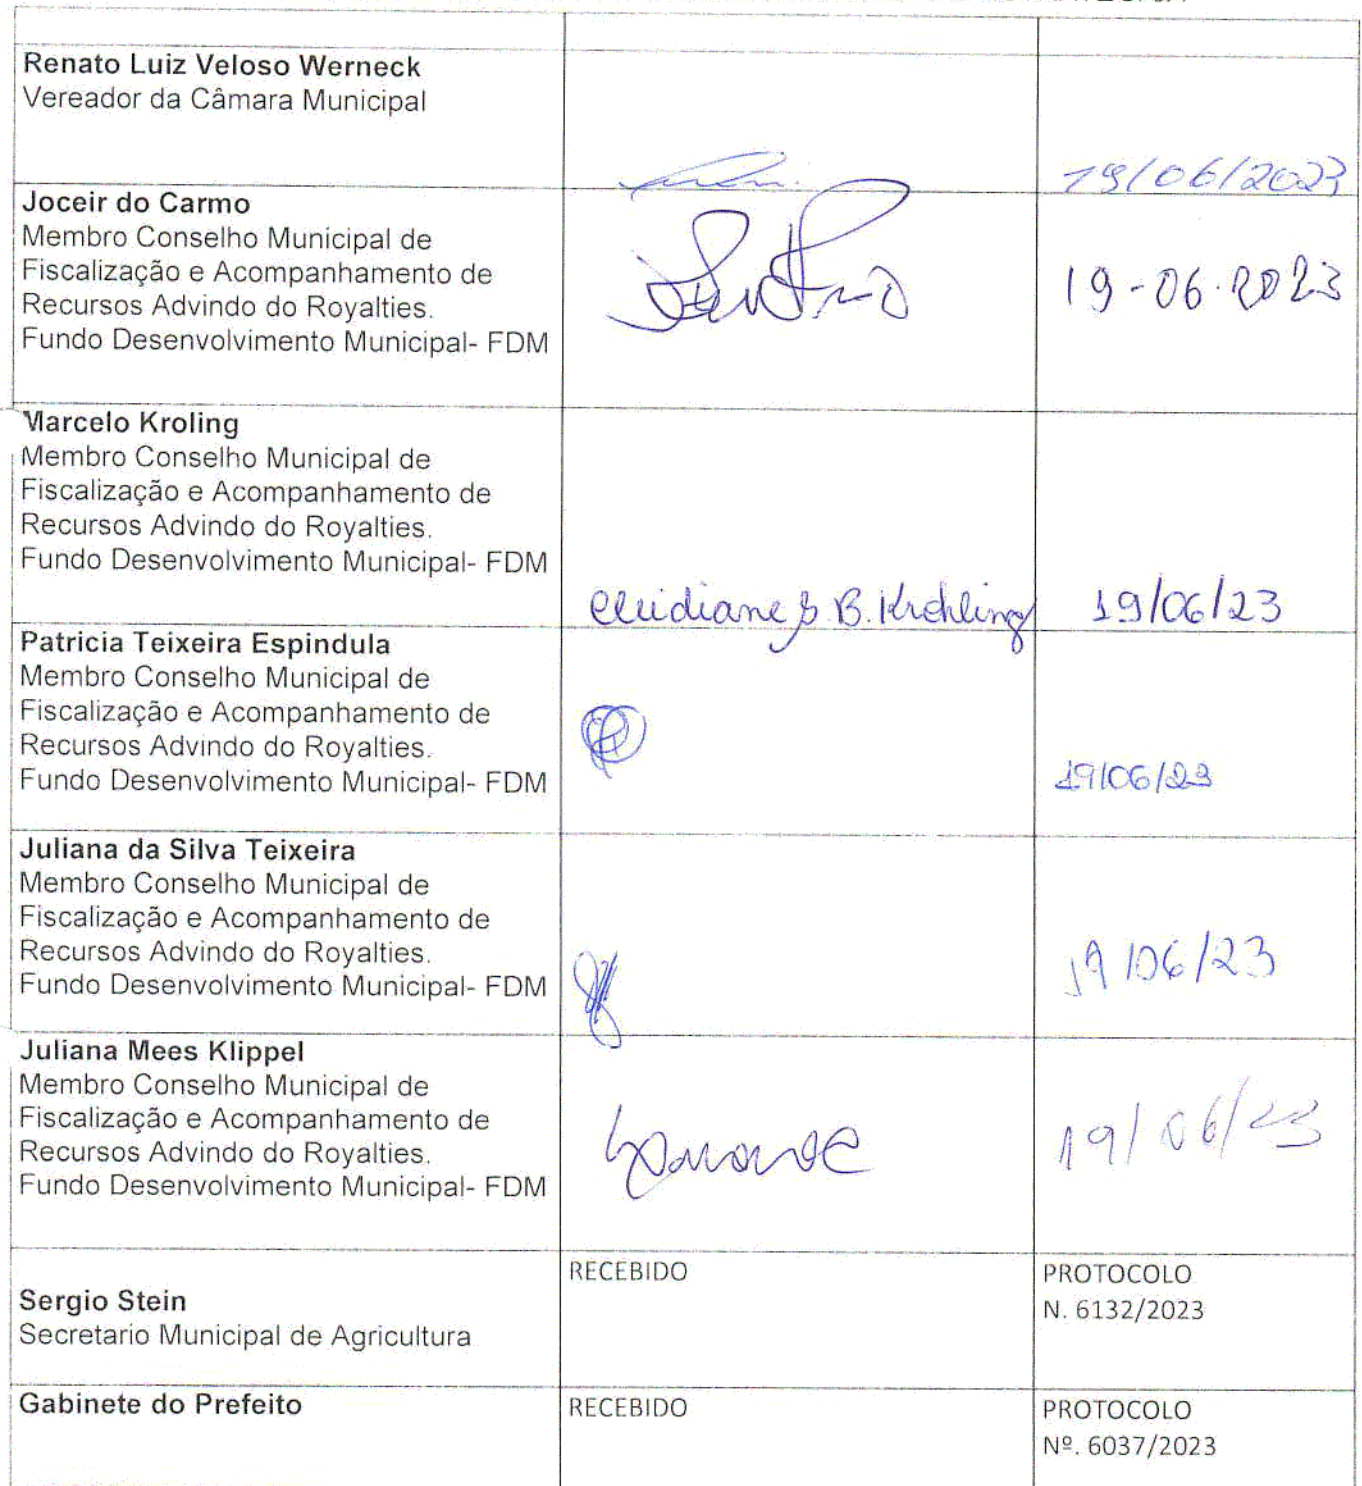 Renato Luiz Veloso Werneck
Vereador da Câmara Municipal
19/06/2023
Joceir do Carmo
Membro Conselho Municipal de
Fiscalização e Acompanhamento de
Recursos Advindo do Royalties.
Fundo Desenvolvimento Municipal- FDM
19-06.2023
Marcelo Kroling
Membro Conselho Municipal de
Fiscalização e Acompanhamento de
Recursos Advindo do Royalties.
Fundo Desenvolvimento Municipal- FDM
B. Krohling
19/06/23
Patricia Teixeira Espindula
Membro Conselho Municipal de
Fiscalização e Acompanhamento de
Recursos Advindo do Royalties.
Fundo Desenvolvimento Municipal- FDM
19/06/23
Juliana da Silva Teixeira
Membro Conselho Municipal de
Fiscalização e Acompanhamento de
Recursos Advindo do Royalties.
Fundo Desenvolvimento Municipal- FDM
19/06/23
Juliana Mees Klippel
Membro Conselho Municipal de
Fiscalização e Acompanhamento de
Recursos Advindo do Royalties.
Fundo Desenvolvimento Municipal- FDM
19/06/23
Sergio Stein
Secretario Municipal de Agricultura
RECEBIDO
PROTOCOLO
N. 6132/2023
Gabinete do Prefeito
RECEBIDO
PROTOCOLO
Nº. 6037/2023